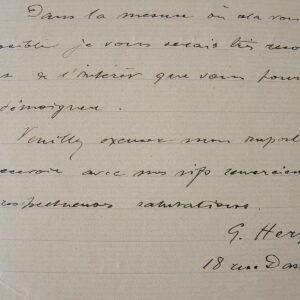 Dans la mesure où cela vou
ssible je vous serais très recon
de l'intérêt que vous pour
témoigner.
Veuillez excuser mon import
ecevoir avec mes vifs remercie
respectueuses salutations.
G. Her
18 rue Das